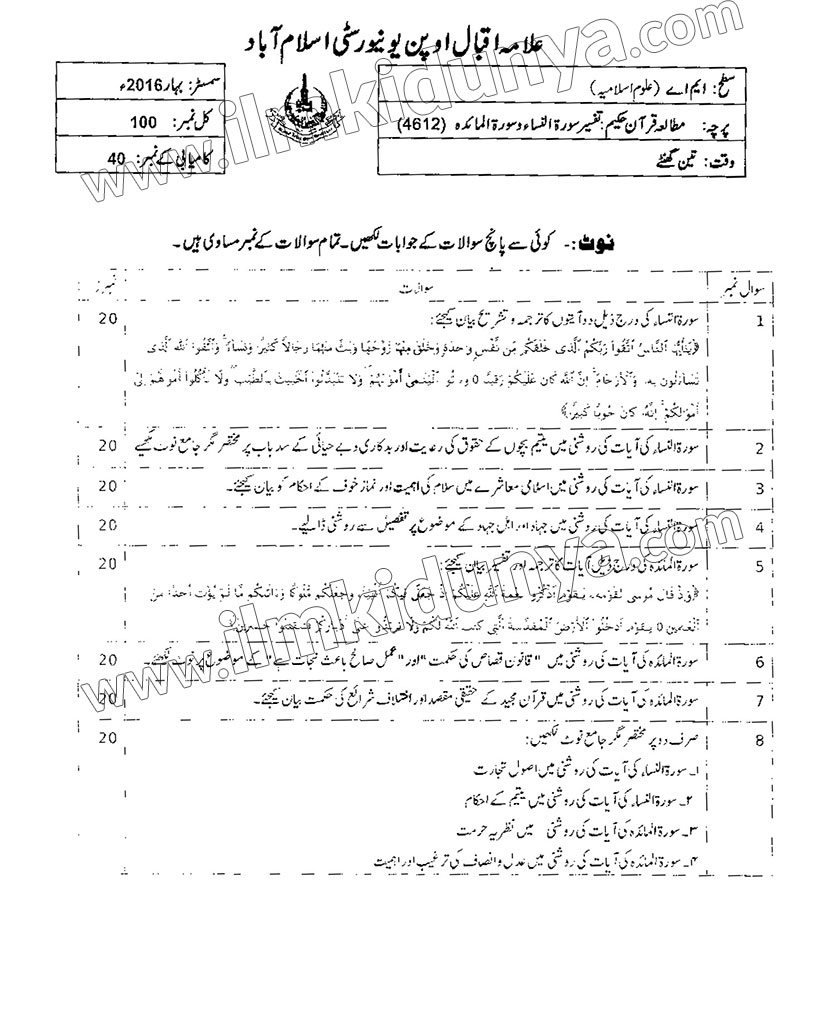 علامہ اقبال اوپن یونیورسٹی اسلام آباد
سطح: ایم اے (علوم اسلامیہ)
سمسٹر: بہار 2016ء
پرچہ: مطالعہ قرآن حکیم: تفسیر سورۃ النساء وسورۃ المائدہ (4612)
کل نمبر: 100
وقت: تین گھنٹے
کامیابی کے نمبر: 40
نوٹ:- کوئی سے پانچ سوالات کے جوابات لکھیں۔ تمام سوالات کے نمبر مساوی ہیں۔
سوال نمبر سوالات
1 سورۃ النساء کی درج ذیل دو آیتوں کا ترجمہ و تشریح بیان کیجئے: 20
﴿يَٰٓأَيُّهَا ٱلنَّاسُ ٱتَّقُوا۟ رَبَّكُمُ ٱلَّذِى خَلَقَكُم مِّن نَّفْسٍ وَٰحِدَةٍ وَخَلَقَ مِنْهَا زَوْجَهَا وَبَثَّ مِنْهُمَا رِجَالًا كَثِيرًا وَنِسَآءً ۚ وَٱتَّقُوا۟ ٱللَّهَ ٱلَّذِى
تَسَآءَلُونَ بِهِۦ وَٱلْأَرْحَامَ ۚ إِنَّ ٱللَّهَ كَانَ عَلَيْكُمْ رَقِيبًا 0 وَءَاتُوا۟ ٱلْيَتَٰمَىٰٓ أَمْوَٰلَهُمْ ۖ وَلَا تَتَبَدَّلُوا۟ ٱلْخَبِيثَ بِٱلطَّيِّبِ ۖ وَلَا تَأْكُلُوٓا۟ أَمْوَٰلَهُمْ إِلَىٰٓ
أَمْوَٰلِكُمْ ۚ إِنَّهُۥ كَانَ حُوبًا كَبِيرًا﴾
2 سورۃ النساء کی آیات کی روشنی میں یتیم بچوں کے حقوق کی رعایت اور بدکاری و بے حیائی کے سد باب پر مختصر مگر جامع نوٹ لکھیے 20
3 سورۃ النساء کی آیات کی روشنی میں اسلامی معاشرے میں سلام کی اہمیت اور نماز خوف کے احکام کو بیان کیجئے۔ 20
4 سورۃ النساء کی آیات کی روشنی میں جہاد اور اہل جہاد کے موضوع پر تفصیل سے روشنی ڈالیے۔ 20
5 سورۃ المائدہ کی درج ذیل آیات کا ترجمہ اور تفسیر بیان کیجئے: 20
﴿وَإِذْ قَالَ مُوسَىٰ لِقَوْمِهِۦ يَٰقَوْمِ ٱذْكُرُوا۟ نِعْمَةَ ٱللَّهِ عَلَيْكُمْ إِذْ جَعَلَ فِيكُمْ أَنۢبِيَآءَ وَجَعَلَكُم مُّلُوكًا وَءَاتَىٰكُم مَّا لَمْ يُؤْتِ أَحَدًا مِّنَ
ٱلْعَٰلَمِينَ 0 يَٰقَوْمِ ٱدْخُلُوا۟ ٱلْأَرْضَ ٱلْمُقَدَّسَةَ ٱلَّتِى كَتَبَ ٱللَّهُ لَكُمْ وَلَا تَرْتَدُّوا۟ عَلَىٰٓ أَدْبَارِكُمْ فَتَنقَلِبُوا۟ خَٰسِرِينَ﴾
6 سورۃ المائدہ کی آیات کی روشنی میں "قانون قصاص کی حکمت" اور "عمل صالح باعث نجات ہے" کے موضوع پر نوٹ لکھیے۔ 20
7 سورۃ المائدہ کی آیات کی روشنی میں قرآن مجید کے حقیقی مقصد اور اختلاف شرائع کی حکمت بیان کیجئے۔ 20
8 صرف دو پر مختصر مگر جامع نوٹ لکھیں: 20
۱۔ سورۃ النساء کی آیات کی روشنی میں اصول تجارت
۲۔ سورۃ النساء کی آیات کی روشنی میں یتیم کے احکام
۳۔ سورۃ المائدہ کی آیات کی روشنی میں نظریہ حرمت
۴۔ سورۃ المائدہ کی آیات کی روشنی میں عدل و انصاف کی ترغیب اور اہمیت
www.ilmkidunya.com
www.ilmkidunya.com